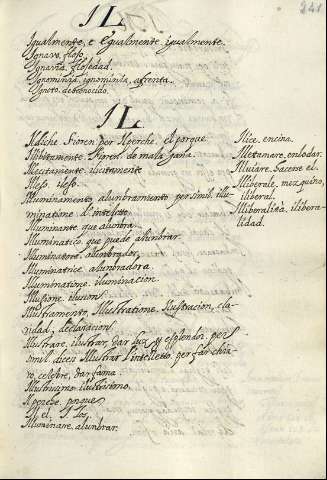 241
IL
Igualmente, e Egualmente igualmente.
Ignavo, flojo.
Ignavia, flojedad.
Ignominia, ignominia, afrenta.
Ignoto, desconocido.
IL
Ildiche Fioren per Ilperche, el porque
Illecitamente, ilicitamente
Illeso, ileso.
Illuminamento, alumbramiento per simil. illu-
minatione d'intelletto.
Illuminante que alumbra.
Illuminatico que puede alumbrar.
Illuminatore, alumbrador.
Illuminatrice, alumbradora
Illuminatione, iluminacion.
Illusione ilusion.
Illustramento, Illustratione, ilustracion, cla-
ridad, declaracion.
Illustrare, ilustrar, dar luz, y esplendor, per
simil. dicesi Illustrar l'intelletto, per far chia-
ro, celebre, dar fama
Illustrissimo ilustrisimo.
Il perche, porque
Illuminare, alumbrar.
Ilice, encina.
Illetamare, enlodar.
Illiberale, mezquino,
iliberal.
Illiberalità, ilibera-
lidad.